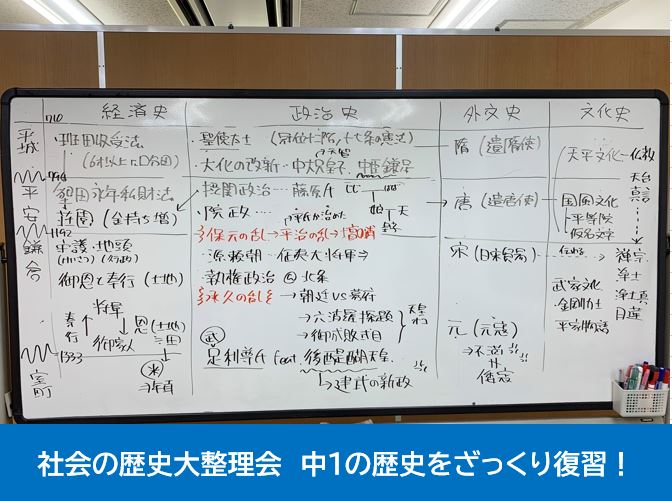 経済史 政治史 外交史 文化史
710
平城
794
平安
1192
鎌倉
1333
室町
・班田収受法
(6才以上に口分田)
墾田永年私財法
荘園(金持ち増)
守護・地頭
御恩と奉行(土地)
将軍
奉行
恩(土地)
御家人
・聖徳太子(冠位十二階/十七条の憲法)
・大化の改新…中大兄皇子、中臣鎌足
天智
・摂関政治…藤原氏
娘
天
・院政…
平氏が治めた
保元の乱→平治の乱→
・源頼朝…征夷大将軍⇒
・執権政治 北条
承久の乱
→朝廷VS幕府
→六波羅探題
→御成敗式目
武
足利尊氏 feat. 後醍醐天皇
建武の新政
隋(遣隋使)
唐(遣唐使)
宋(日宋貿易)
元(元寇)
→不満
倭寇
天平文化
仏教
天台
真言
国風文化
平等院
仮名文字
禅宗
浄土
浄土真
日蓮
武家文化
金剛力士
平家物語
社会の歴史大整理会 中1の歴史をざっくり復習！